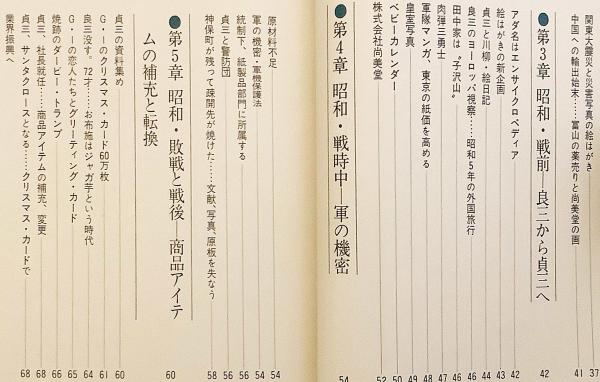 関東大震災と災害写真の絵はがき 37
中国への輸出始末……富山の薬売りと尚美堂の画 41
●第3章 昭和・戦前―良三から貞三へ 42
アダ名はエンサイクロペディア 42
絵はがきの新企画 43
貞三と川柳・絵日記 44
良三のヨーロッパ視察……昭和5年の外国旅行 46
田中家は〝子沢山〟 46
肉弾三勇士 47
軍隊マンガ、東京の紙価を高める 48
皇室写真 49
ベビーカレンダー 50
株式会社尚美堂 52
●第4章 昭和・戦時中―軍の機密 54
原材料不足 54
軍の機密・軍機保護法 54
統制下、紙製品部門に所属する 56
貞三と警防団 56
神保町が残って疎開先が焼けた……文献、写真、原板を失なう 58
●第5章 昭和・敗戦と戦後―商品アイテ
ムの補充と転換 60
貞三の資料集め 60
G・Iのクリスマス・カード60万枚 61
良三没す。72才……お布施はジャガ芋という時代 64
G・Iの恋人たちとグリーティング・カード 65
焼跡のダービー・トランプ 66
貞三、社長就任……商品アイテムの補充、変更 68
貞三、サンタクロースとなる……クリスマス・カードで
業界振興へ 68